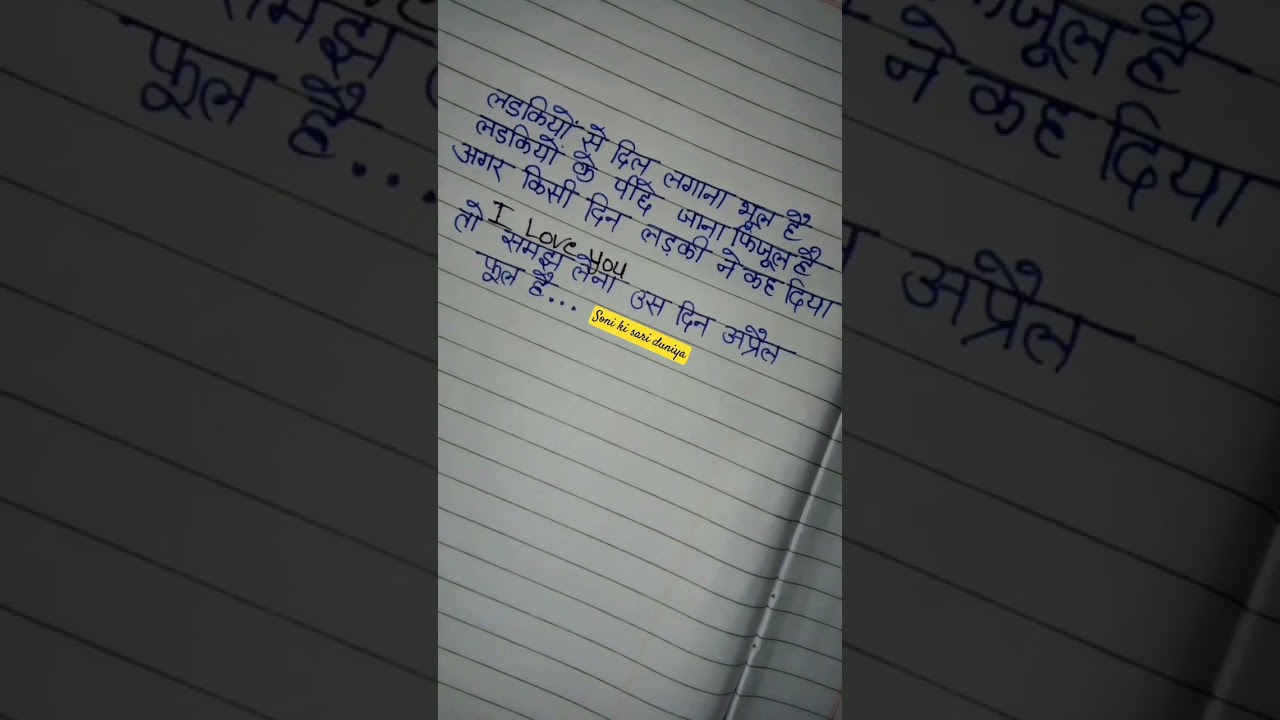 लडकियों से दिल लगाना भूल है
लडकियों के पीछे जाना फिजूल है
अगर किसी दिन लड़की ने कह दिया
I Love you
तो समझ लेना उस दिन अप्रैल
फूल है...
Soni ki sari duniya